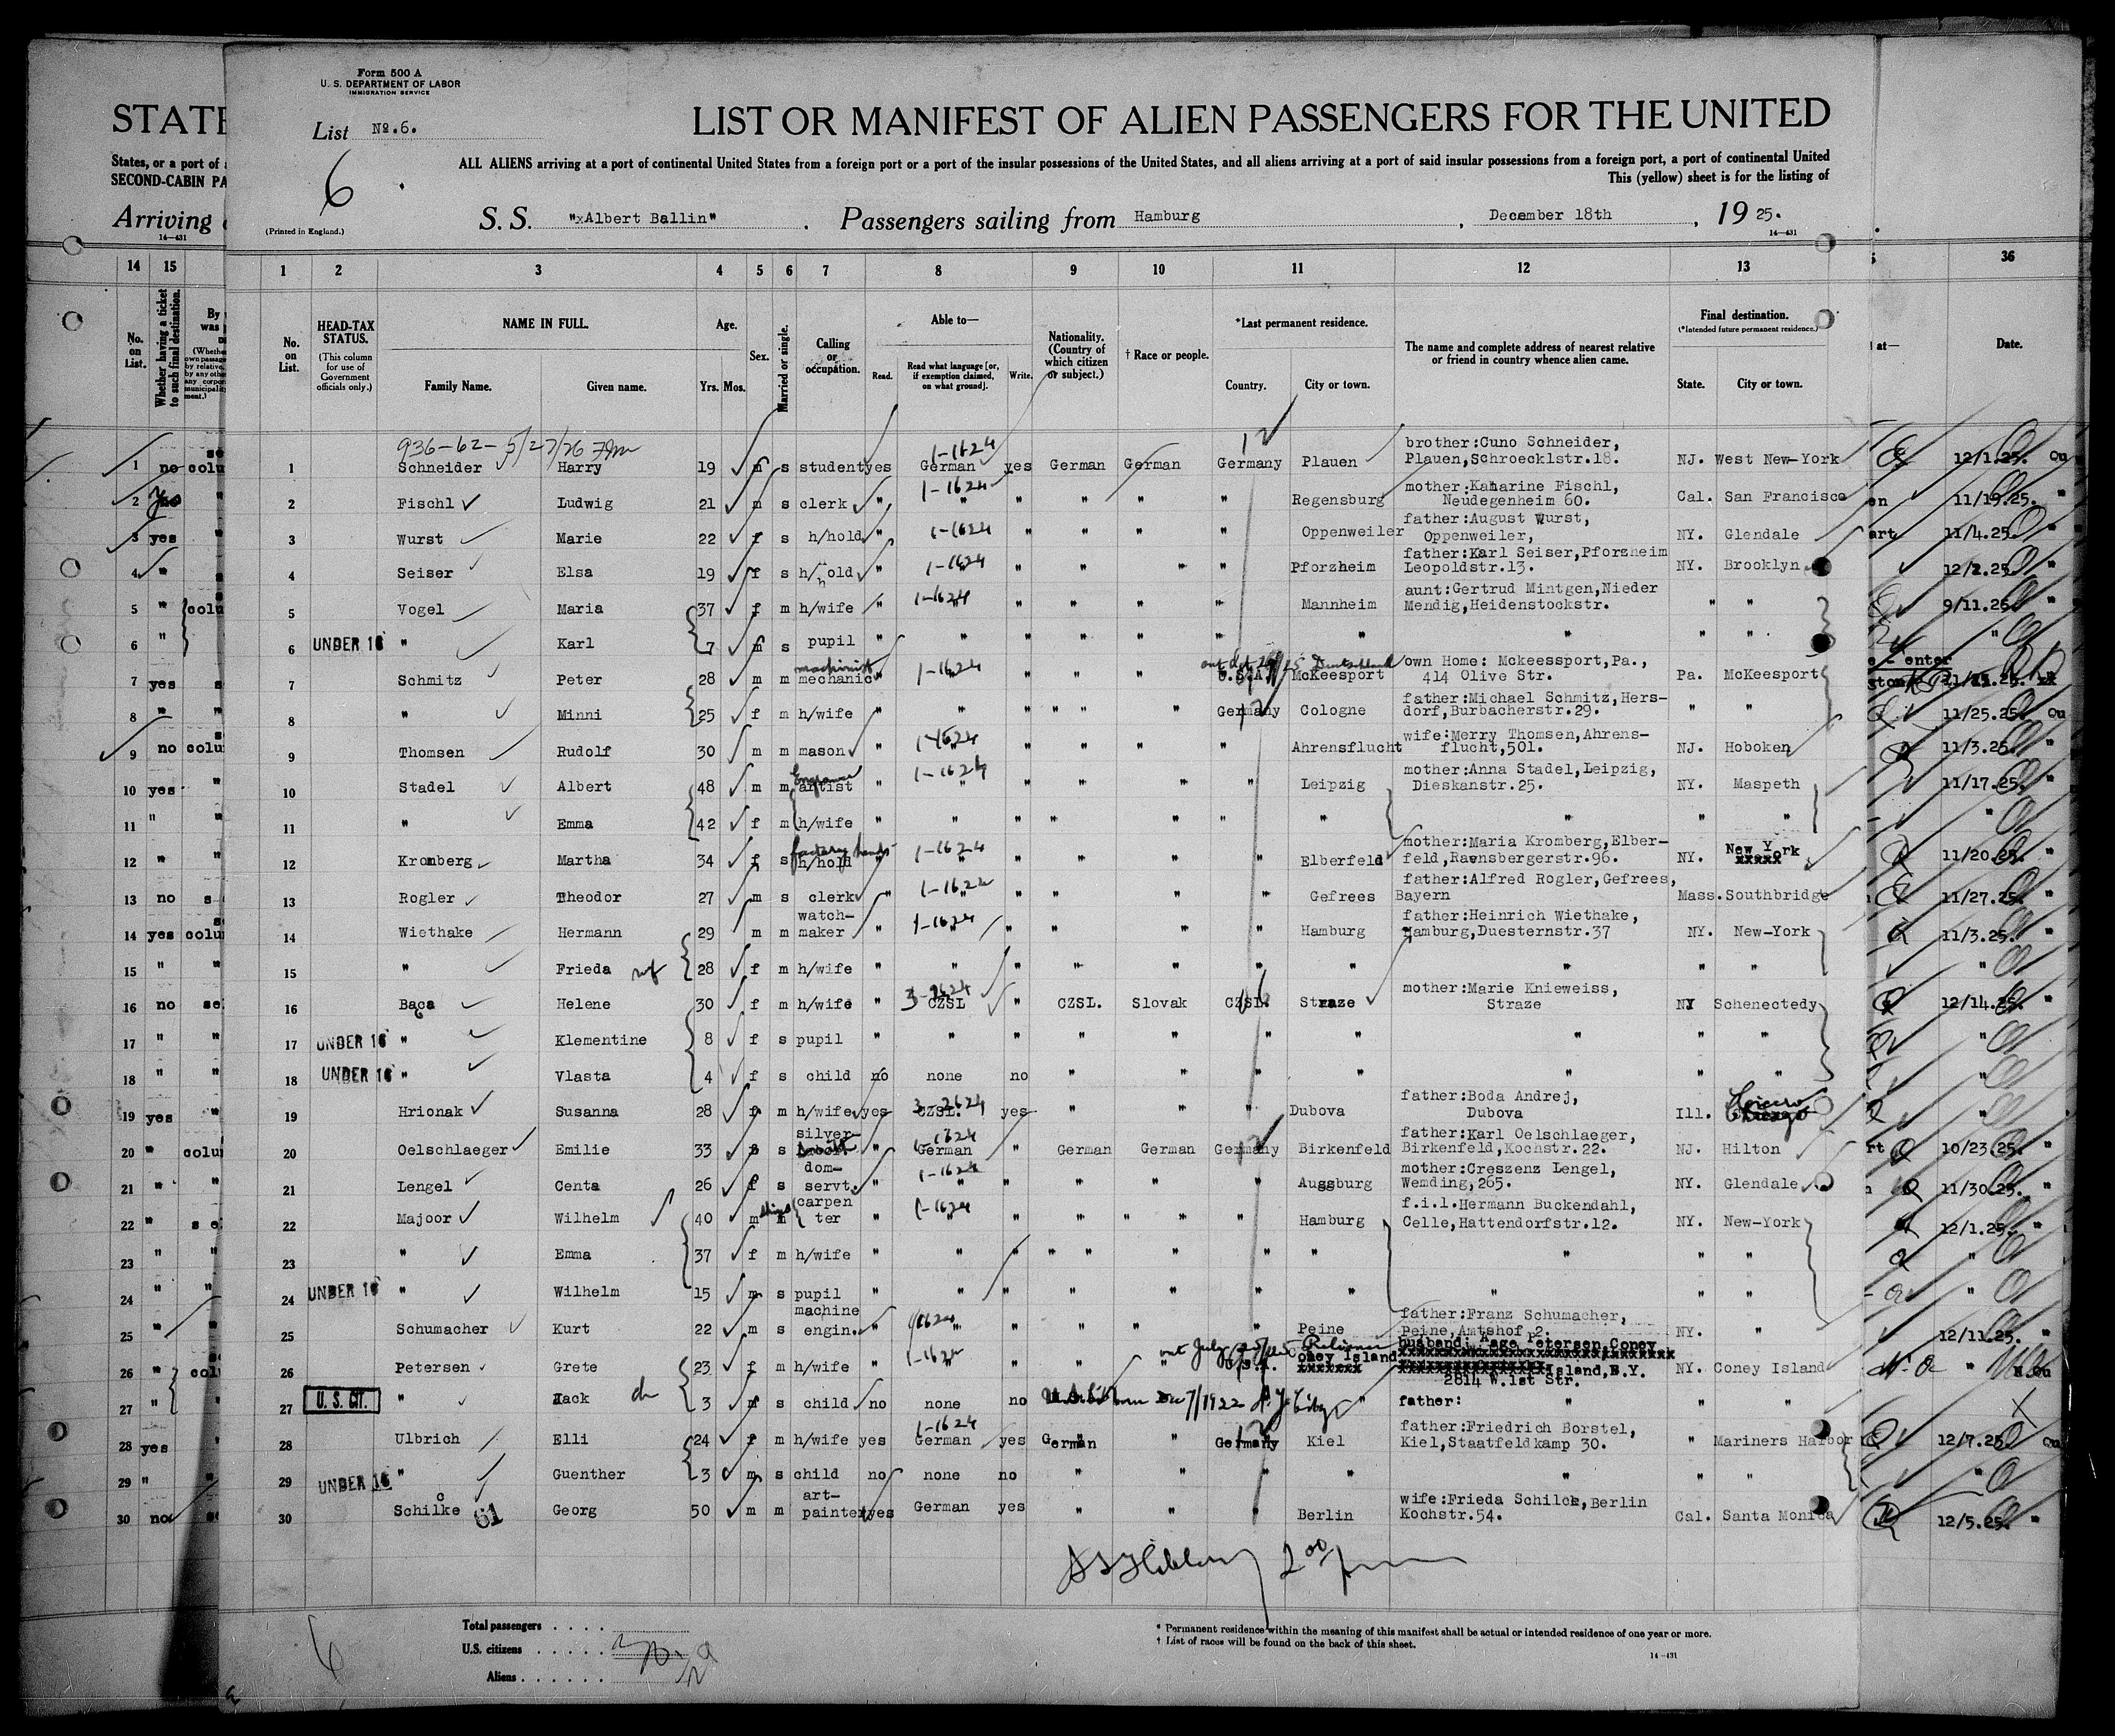 Form 500 A
U. S. DEPARTMENT OF LABOR
IMMIGRATION SERVICE
STATE
List No. 6.
LIST OR MANIFEST OF ALIEN PASSENGERS FOR THE UNITED
States, or a port of
SECOND-CABIN PA
ALL ALIENS arriving at a port of continental United States from a foreign port or a port of the insular possessions of the United States, and all aliens arriving at a port of said insular possessions from a foreign port, a port of continental United
This (yellow) sheet is for the listing of
6
Arriving
14—431
(Printed in England.)
S. S. "xAlbert Ballin" . Passengers sailing from Hamburg , December 18th , 19 25.
14—431
14 15 1 2 3 4 5 6 7 8 9 10 11 12 13 36
No. on List. Whether having a ticket to such final destination. By was
No. on List. HEAD-TAX STATUS. (This column for use of Government officials only.) NAME IN FULL. Family Name. Given name. Age. Yrs. Mos. Sex. Married or single. Calling or occupation. Able to— Read. Read what language [or, if exemption claimed, on what ground]. Write. Nationality. (Country of which citizen or subject.) † Race or people. *Last permanent residence. Country. City or town. The name and complete address of nearest relative or friend in country whence alien came. Final destination. (*Intended future permanent residence.) State. City or town. at— Date.
936-62-5/27/26
1 no colu 1 Schneider Harry 19 m s student yes German 1-1624 yes German German Germany Plauen brother:Cuno Schneider, Plauen,Schroecklstr.18. NJ. West New-York 12/1.25. Qu
2 2 Fischl Ludwig 21 m s clerk " 1-1624 " " " " " Regensburg mother:Kaharine Fischl, Neudegenheim 60. Cal. San Francisco en 11/19.25. "
3 yes " 3 Wurst Marie 22 f s h/hold " 1-1624 " " " " Oppenweiler father:August Wurst, Oppenweiler, NY. Glendale art 11/4.25. "
4 " 4 Seiser Elsa 19 f s h/hold " 1-1624 " " " " Pforzheim father:Karl Seiser,Pforzheim Leopoldstr.13. NY. Brooklyn 12/2.25. "
5 " colu 5 Vogel Maria 37 f m h/wife " 1-1624 " " " " Mannheim aunt:Gertrud Mintgen,Nieder Mendig,Heidenstockstr. " " 9/11.25. "
6 " 6 UNDER 16 " Karl 7 m s pupil " " " " " " " " " " "
7 yes s 7 Schmitz Peter 28 m m machinist mechanic " 1-1624 " " " U.S.A. McKeesport own Home: Mckeessport,Pa., 414 Olive Str. Pa. McKeesport
8 " " 8 " Minni 25 f m h/wife " " " " " " Germany Cologne father:Michael Schmitz, Hersdorf,Burbacherstr.29. " " 11/25.25. Qu
9 no colu 9 Thomsen Rudolf 30 m m mason " 1-1624 " " " " Ahrensflucht wife:Merry Thomsen,Ahrensflucht,501. NJ. Hoboken 11/3.25. "
10 yes " 10 Stadel Albert 48 m m artist " 1-1624 " " " " Leipzig mother:Anna Stadel,Leipzig, Dieskanstr.25. NY. Maspeth 11/17.25. "
11 " " 11 " Emma 42 f m h/wife " " " " " " " " " "
12 " " 12 Kromberg Martha 34 f s factory hands h/hold " 1-1624 " " " " Elberfeld mother:Maria Kromberg,Elberfeld,Ravnsbergerstr.96. NY. New York xxxxx 11/20.25. "
13 no s 13 Rogler Theodor 27 m s clerk " 1-1624 " " " " Gefrees father:Alfred Rogler,Gefrees, Bayern Mass. Southbridge 11/27.25. "
14 yes colu 14 Wiethake Hermann 29 m m watchmaker " 1-1624 " " " " Hamburg father:Heinrich Wiethake, Hamburg,Duesternstr.37 NY. New-York 11/3.25. "
15 " " 15 " Frieda wf 28 f m h/wife " " " " " " " " " " "
16 no se 16 Baca Helene 30 f m h/wife " 3-2624 CZSL " CZSL. Slovak CZSL. Straze mother:Marie Knieweiss, Straze NY Schenectedy 12/14.25. "
17 " " 17 UNDER 16 " Klementine 8 f s pupil " " " " " " " " " " "
18 " " 18 UNDER 16 " Vlasta 4 f s child no none no " " " " " " " "
19 yes " 19 Hrionak Susanna 28 f m h/wife yes 3-2624 CZSL. yes " " " Dubova father:Boda Andrej, Dubova Ill. Cicero Chicago "
20 " colu 20 Oelschlaeger Emilie 33 f s silver " 1-1624 German " German German Germany Birkenfeld father:Karl Oelschlaeger, Birkenfeld,Kochstr.22. NJ. Hilton rt 10/23.25. "
21 " " 21 Lengel Centa 26 f s dom-servt. " 1-1624 " " " " " Augsburg mother:Creszenz Lengel, Wemding,265. NY. Glendale 11/30.25. "
22 " s 22 Majoor Wilhelm 40 m m carpenter " 1-1624 " " " " Hamburg f.i.l.Hermann Buckendahl, Celle,Hattendorfstr.12. NY. New-York 12/1.25. "
23 " " 23 " Emma 37 f m h/wife " " " " " " " " " " " "
24 " " 24 UNDER 16 " Wilhelm 15 m s pupil " " " " " " " " " " "
25 " 25 Schumacher Kurt 22 m s machine engin. " 1624 " " " " Peine father:Franz Schumacher, Peine,Amtshof 2. NY. " 12/11.25. "
26 " colu 26 Petersen Grete 23 f m h/wife " 1-1624 " " " U.S.A. Coney Island xxxxxxx husband: Aage Petersen,Coney Island,N.Y. 2814 W.1st Str. NY. Coney Island Qu
27 " 27 U. S. CIT. " Jack ch 3 m s child no none no born Dec 7/1922 N. Y. City " father: " " "
28 yes " 28 Ulbrich Elli 24 f m h/wife yes 1-1624 German yes German " Germany Kiel father:Friedrich Borstel, Kiel,Staatfeldkamp 30. " Mariners Harbor 12/7.25. Qu
29 " " 29 UNDER 16 " Guenther 3 m s child no none no " " " " " " " "
30 no 30 Schilke 61 Georg 50 m m art-painter yes German yes " " " Berlin wife:Frieda Schilck,Berlin Kochstr.54. Cal. Santa Monica 12/5.25. "
6
Total passengers . . . .
U.S. citizens . . . . .
Aliens . . . . . .
* Permanent residence within the meaning of this manifest shall be actual or intended residence of one year or more.
† List of races will be found on the back of this sheet.
14—431